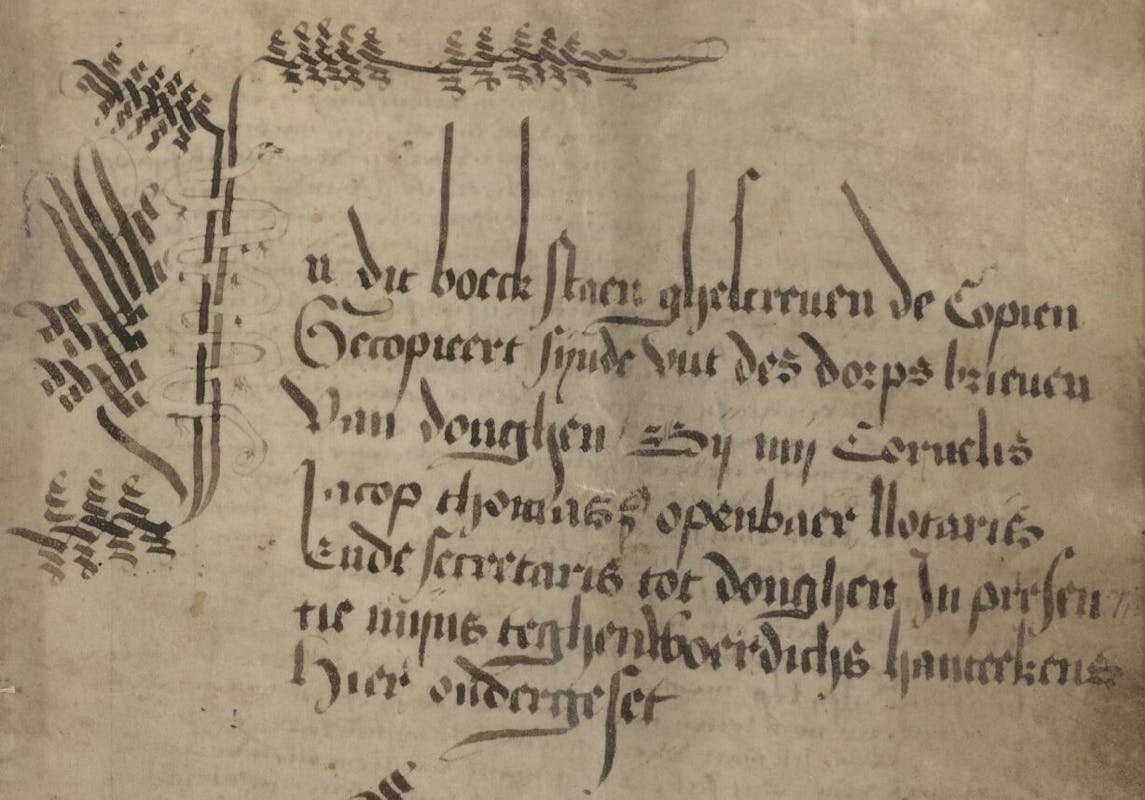 In dit boeck staen ghescreuen de Copien
Gecopieert sijnde vut des dorps brieuen
Van donghen Bij mij Cornelis
Jacop thomass openbaer Notaris
Ende secretaris tot donghen In presen
tie mijns teghenwoerdichs hanteekens
Hier ondergeset